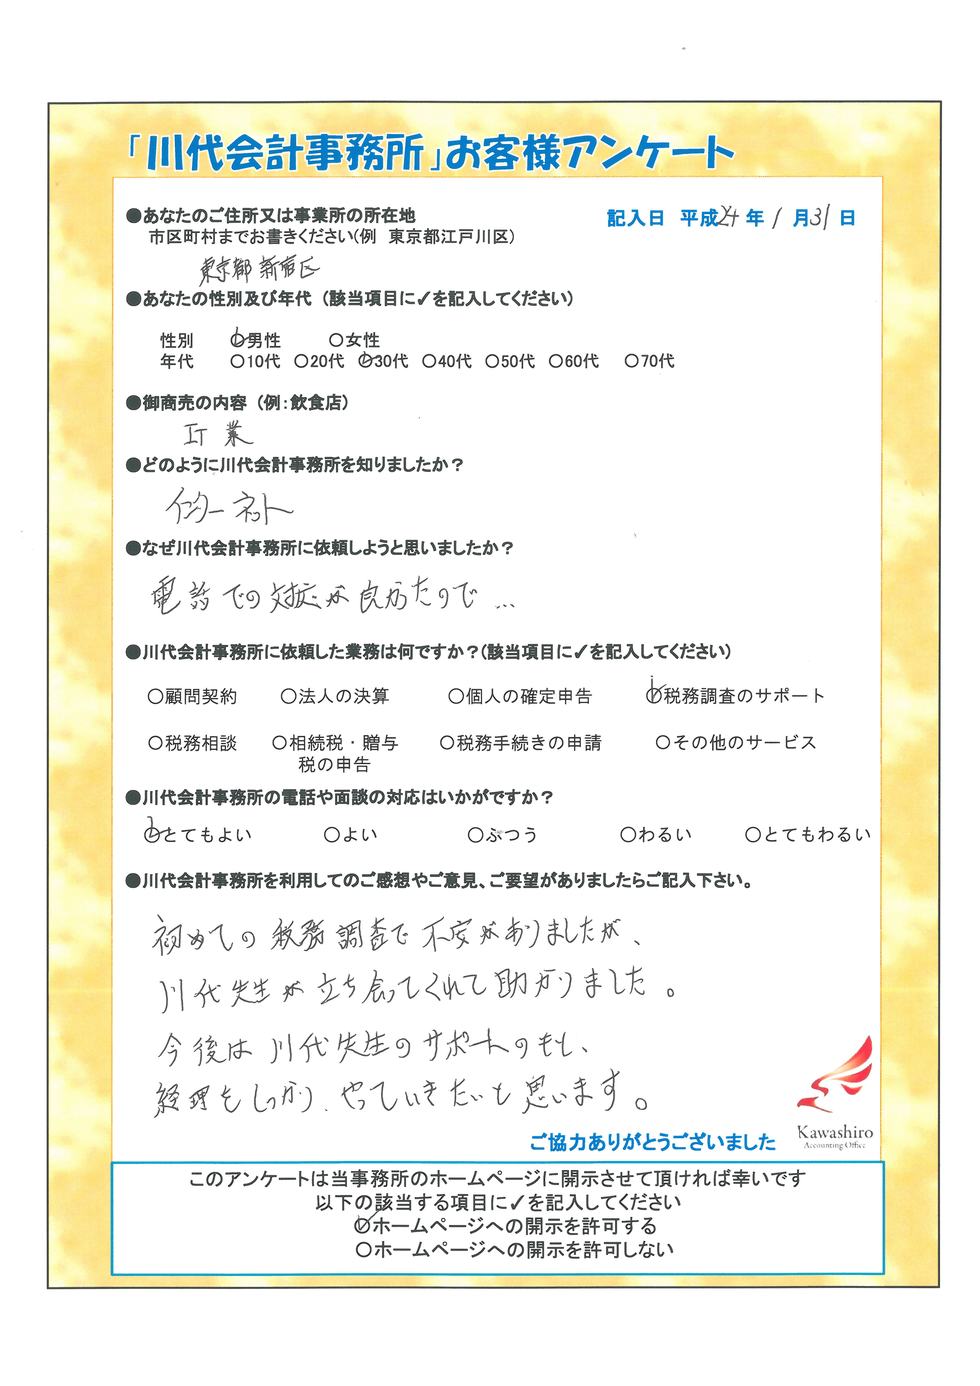 「川代会計事務所」お客様アンケート
●あなたのご住所又は事業所の所在地
記入日 平成24年1月31日
市区町村までお書きください(例 東京都江戸川区)
東京都新宿区
●あなたの性別及び年代 (該当項目に✓を記入してください)
性別 ○男性 ○女性
年代 ○10代 ○20代 ○30代 ○40代 ○50代 ○60代 ○70代
●御商売の内容 (例:飲食店)
IT業
●どのように川代会計事務所を知りましたか?
インターネット
●なぜ川代会計事務所に依頼しようと思いましたか?
電話での対応が良かたので…
●川代会計事務所に依頼した業務は何ですか?(該当項目に✓を記入してください)
○顧問契約 ○法人の決算 ○個人の確定申告 ○税務調査のサポート
○税務相談 ○相続税・贈与 ○税務手続きの申請 ○その他のサービス
税の申告
●川代会計事務所の電話や面談の対応はいかがですか?
○とてもよい ○よい ○ふつう ○わるい ○とてもわるい
●川代会計事務所を利用してのご感想やご意見、ご要望がありましたらご記入下さい。
初めての税務調査で不安がありましたが、
川代先生が立ち会ってくれて助かりました。
今後は川代先生のサポートのもと、
経理をしっかり、やっていきたいと思います。
Kawashiro
Accounting Office
ご協力ありがとうございました
このアンケートは当事務所のホームページに開示させて頂ければ幸いです
以下の該当する項目に✓を記入してください
○ホームページへの開示を許可する
○ホームページへの開示を許可しない